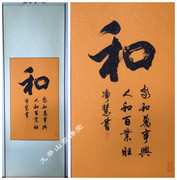 和
家和萬事興
人和百業旺
净慧書
和
家和萬事興
人和百業旺
净慧書